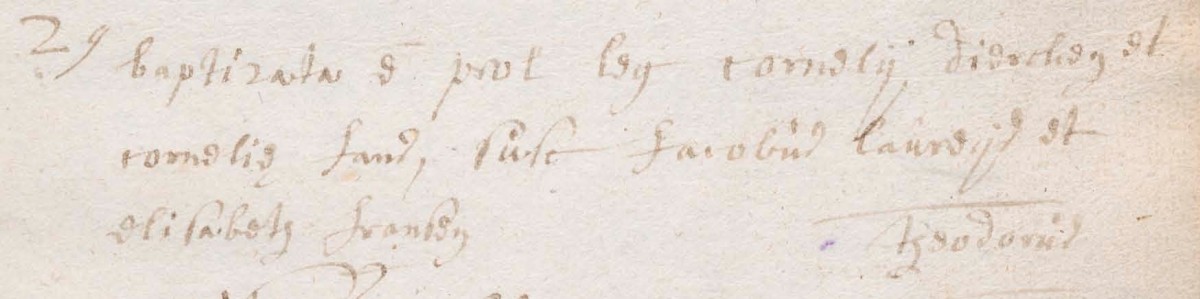 29 baptizata ē prol leg cornelij Dierckx et
cornelie Jans, susc Jacobus laureijs et
elisabeth franssen Theodorus